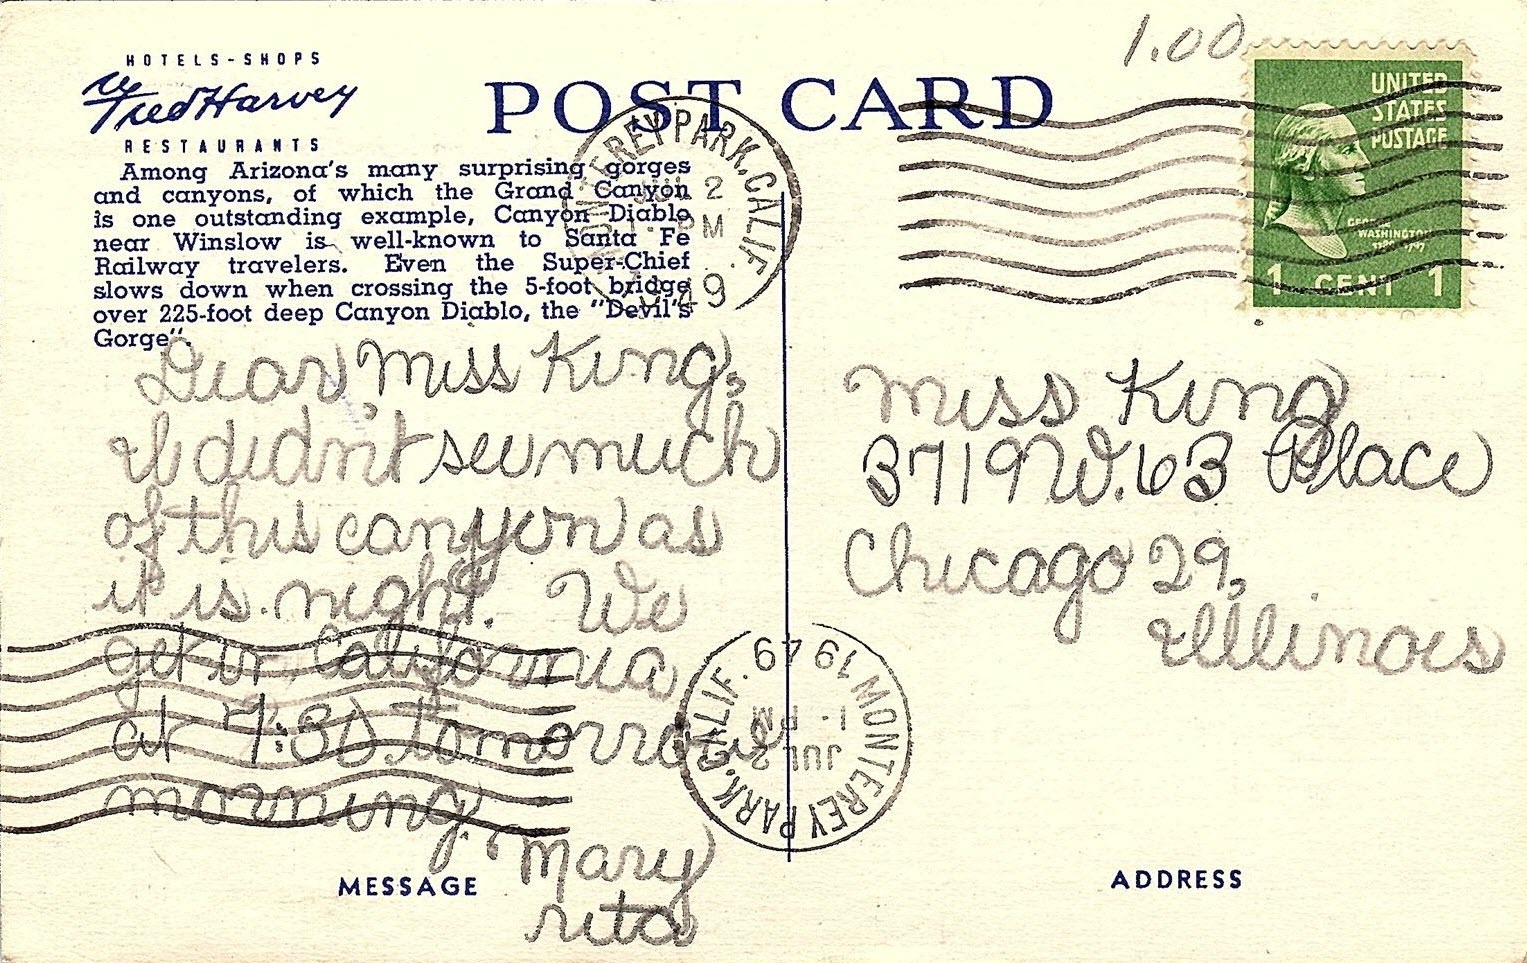 HOTELS-SHOPS
Fred Harvey
RESTAURANTS
POST CARD
1.00
UNITED
STATES
POSTAGE
GEORGE
WASHINGTON
1 CENT 1
MONTEREY PARK, CALIF.
JUL 2
1 - PM
1949
Among Arizona's many surprising gorges
and canyons, of which the Grand Canyon
is one outstanding example, Canyon Diablo
near Winslow is well-known to Santa Fe
Railway travelers. Even the Super-Chief
slows down when crossing the 5-foot bridge
over 225-foot deep Canyon Diablo, the "Devil's
Gorge".
Dear Miss King,
I didn't see much
of this canyon as
it is night. We
get in California
at 7:30 tomorrow
morning.
Mary
rita
MESSAGE
Miss King
3719 W. 63 Place
Chicago 29,
Illinois
MONTEREY PARK, CALIF.
JUL 2
1 - PM
1949
ADDRESS